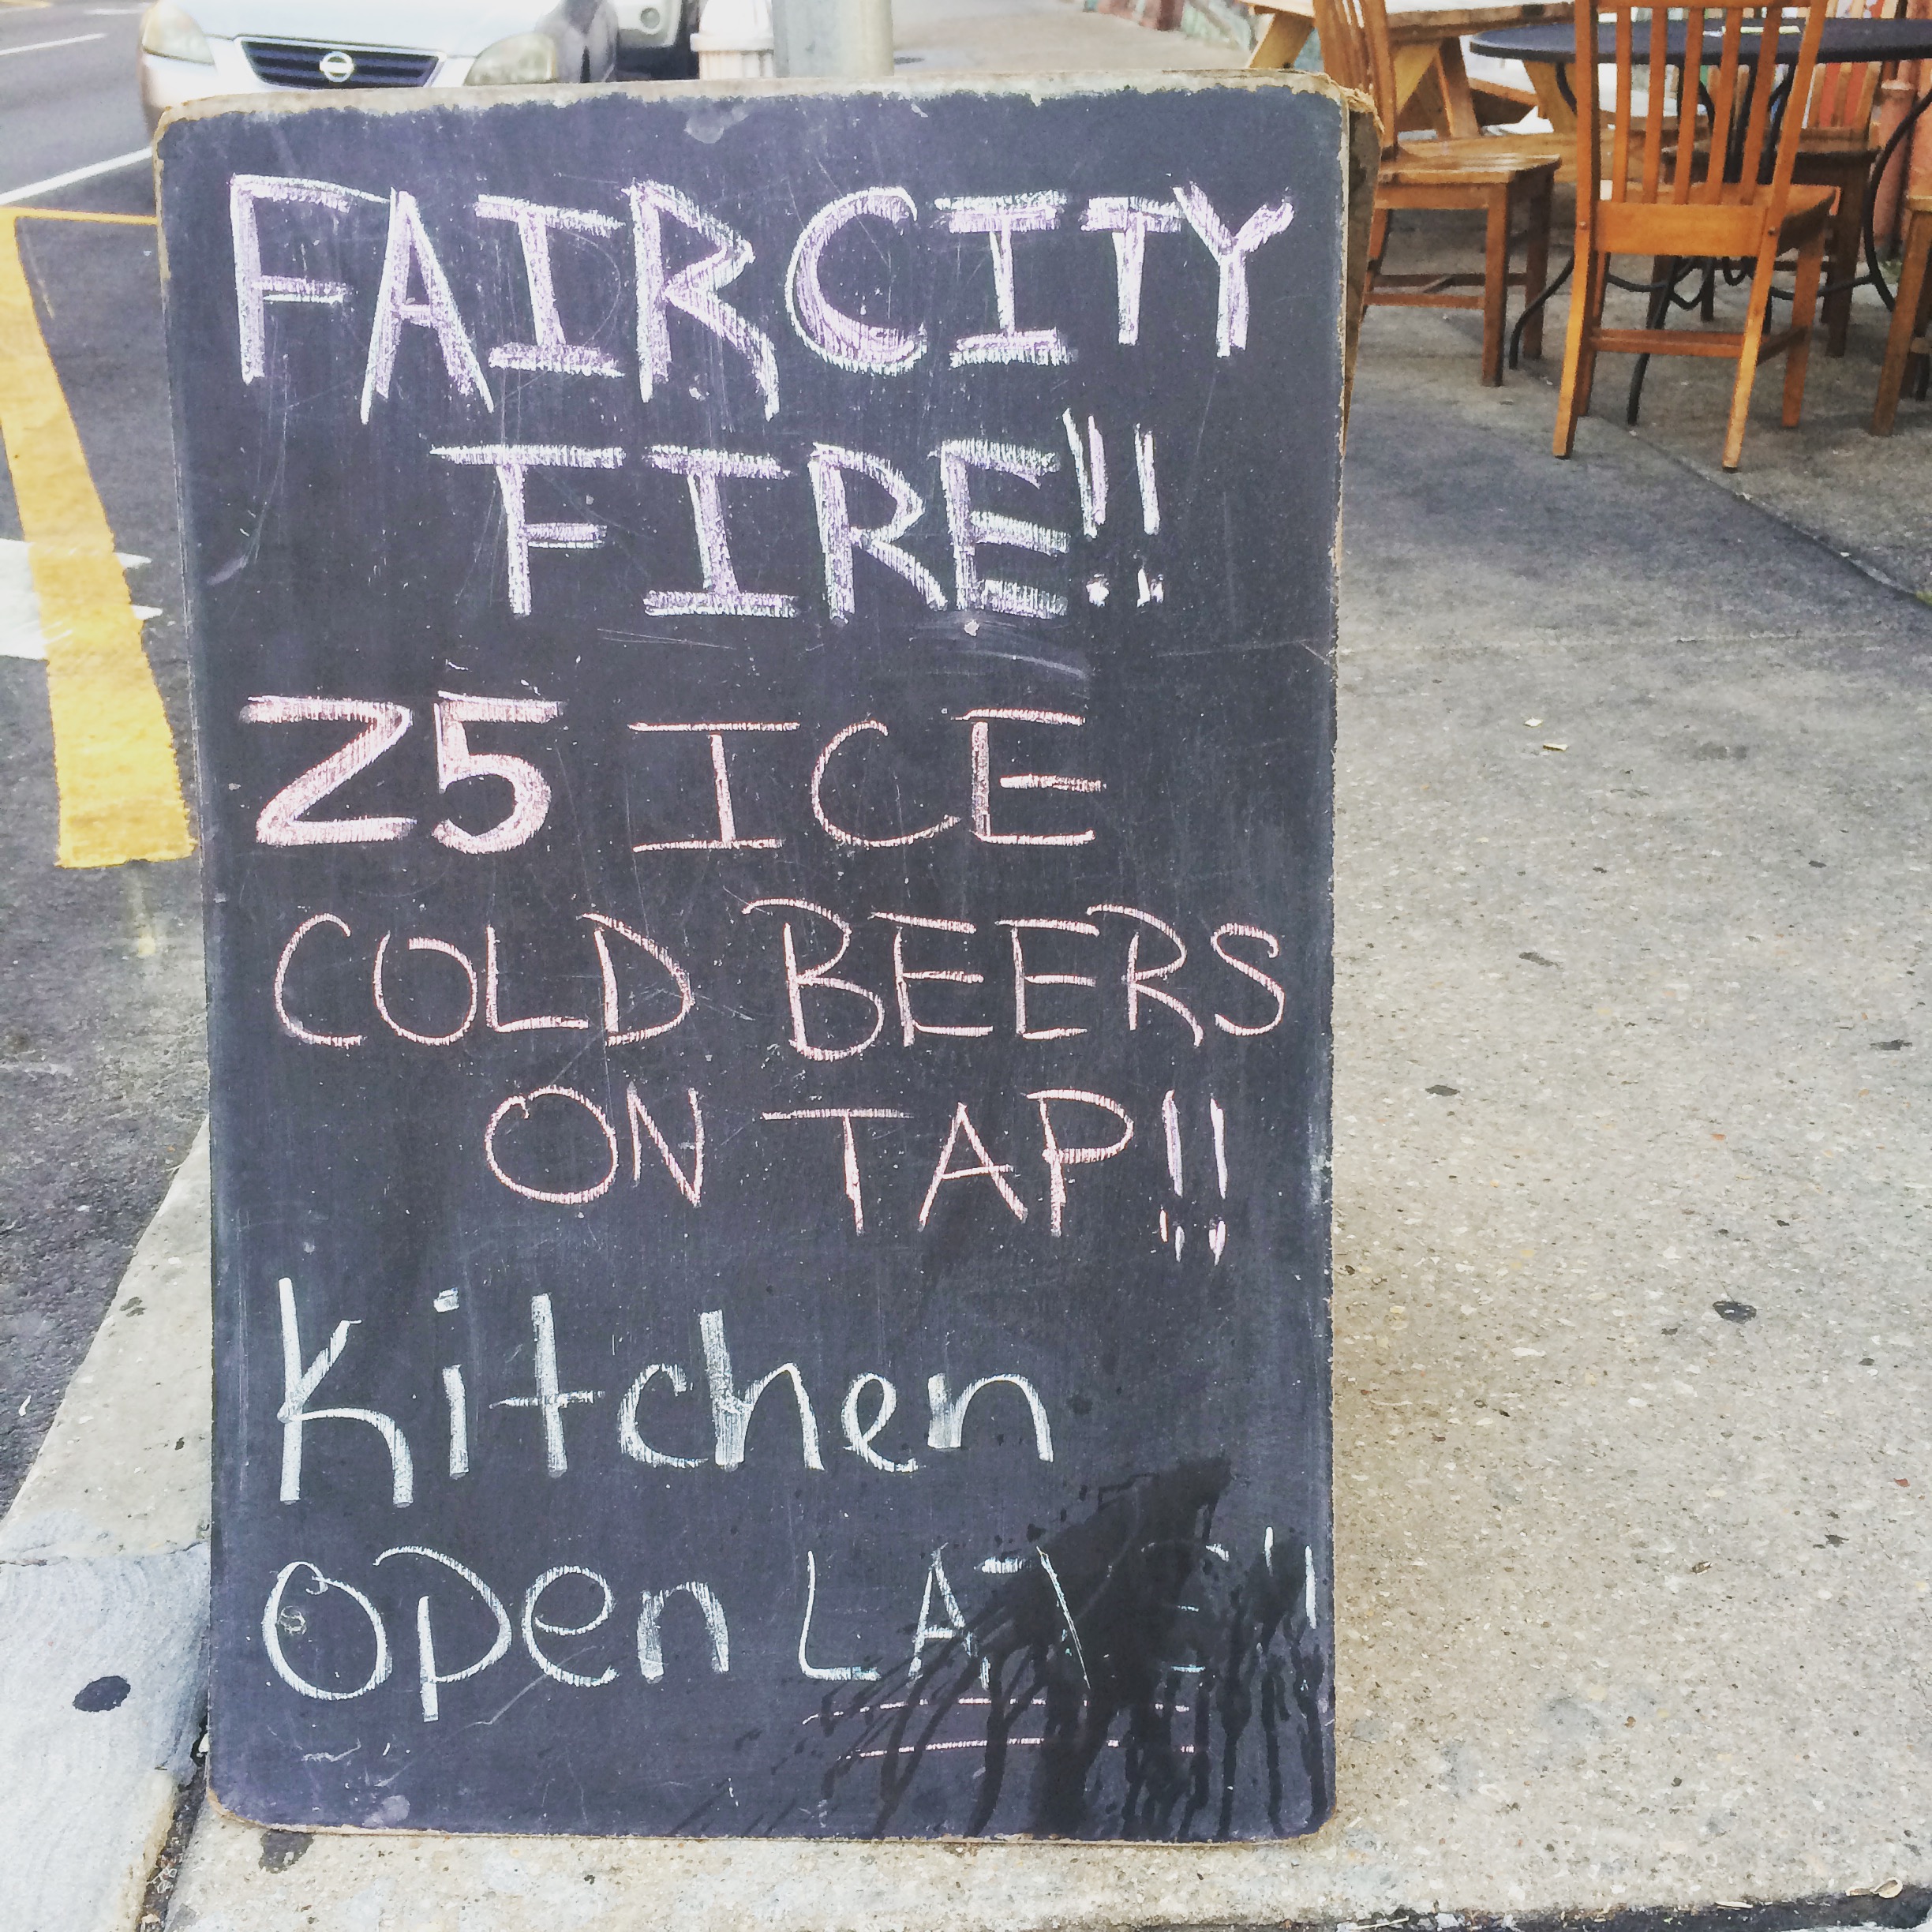 FAIR CITY
FIRE!!
25 ICE
COLD BEERS
ON TAP!!
Kitchen
open LATE!!